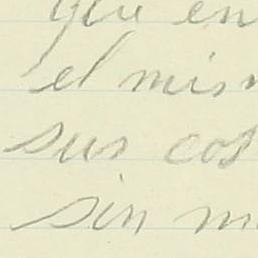 que en
el mism
sus cos
sin m